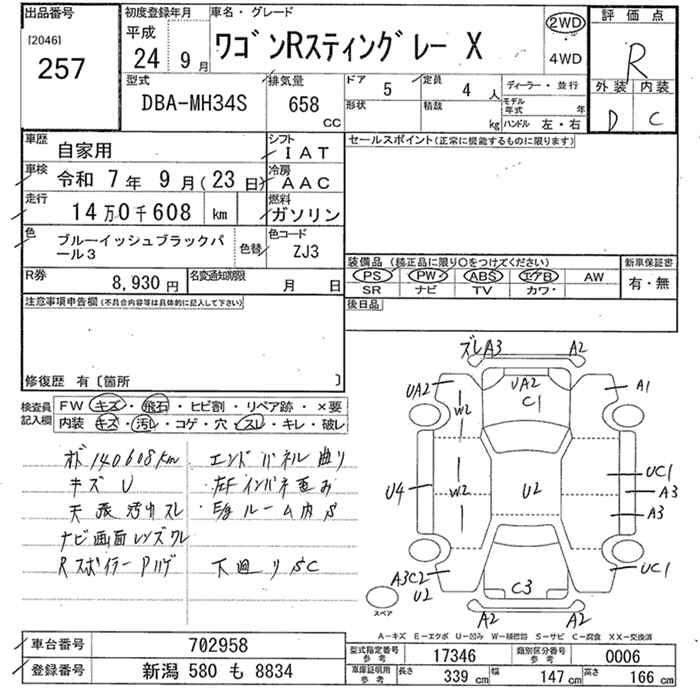 出品番号
[2046]
257
初度登録年月
平成
24 9月
車名・グレード
ワゴンRスティングレー X
2WD
4WD
評価点
R
外装 内装
D C
型式
DBA-MH34S
排気量
658
cc
ドア
5
定員
4 人
形状
積載
kg
ディーラー・並行
モデル年式 年
ハンドル 左・右
車歴
自家用
シフト
IAT
車検
令和 7年 9月(23日)
冷房
AAC
走行
14万0千608 km
燃料
ガソリン
色
ブルーイッシュブラックパール3
色替
色コード
ZJ3
R券
8,930円
名変通知期限
月 日
セールスポイント(正常に機能するものに限ります)
装備品 (純正品に限り○をつけてください)
PS PW ABS エアB AW
SR ナビ TV カワ
新車保証書
有・無
後日品
注意事項申告欄(不具合内容等は具体的に記入して下さい)
修復歴 有〔箇所 〕
検査員記入欄
FW キズ・飛石・ヒビ割・リペア跡・×要
内装 キズ・汚レ・コゲ・穴・スレ・キレ・破レ
オド 140608km エンドパネル曲り
キズ U 左Fインパネ歪み
天張汚れスレ ルーム内S
ナビ画面レンズワレ
Rスポイラー Pハゲ 下廻りSC
ズレA3 A2
UA2 W2 UA2 C1 A1
U4 W2 U2 UC1
A3
A3
A3C2 U2 C3 UC1
A2 A2
スペア
A-キズ E-エクボ U-凹み W-補修跡 S-サビ C-腐食 XX-交換済
車台番号
702958
登録番号
新潟 580 も 8834
型式指定番号 参考
17346
類別区分番号 参考
0006
車庫証明用 参考
長さ 339 cm 幅 147 cm 高さ 166 cm